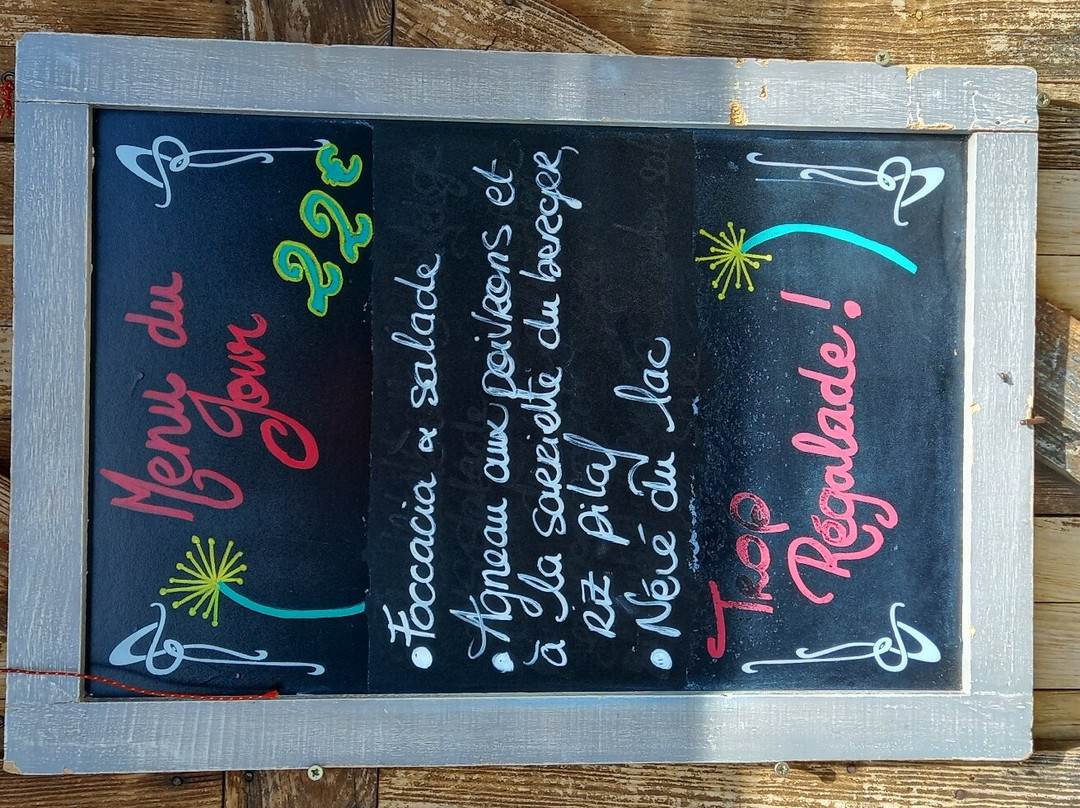 Menu du
Jour
22€
• Foccacia & salade
• Agneau aux poivrons et
à la sarriette du berger,
riz pilaf
• Néré du lac
Trop
Régalade !